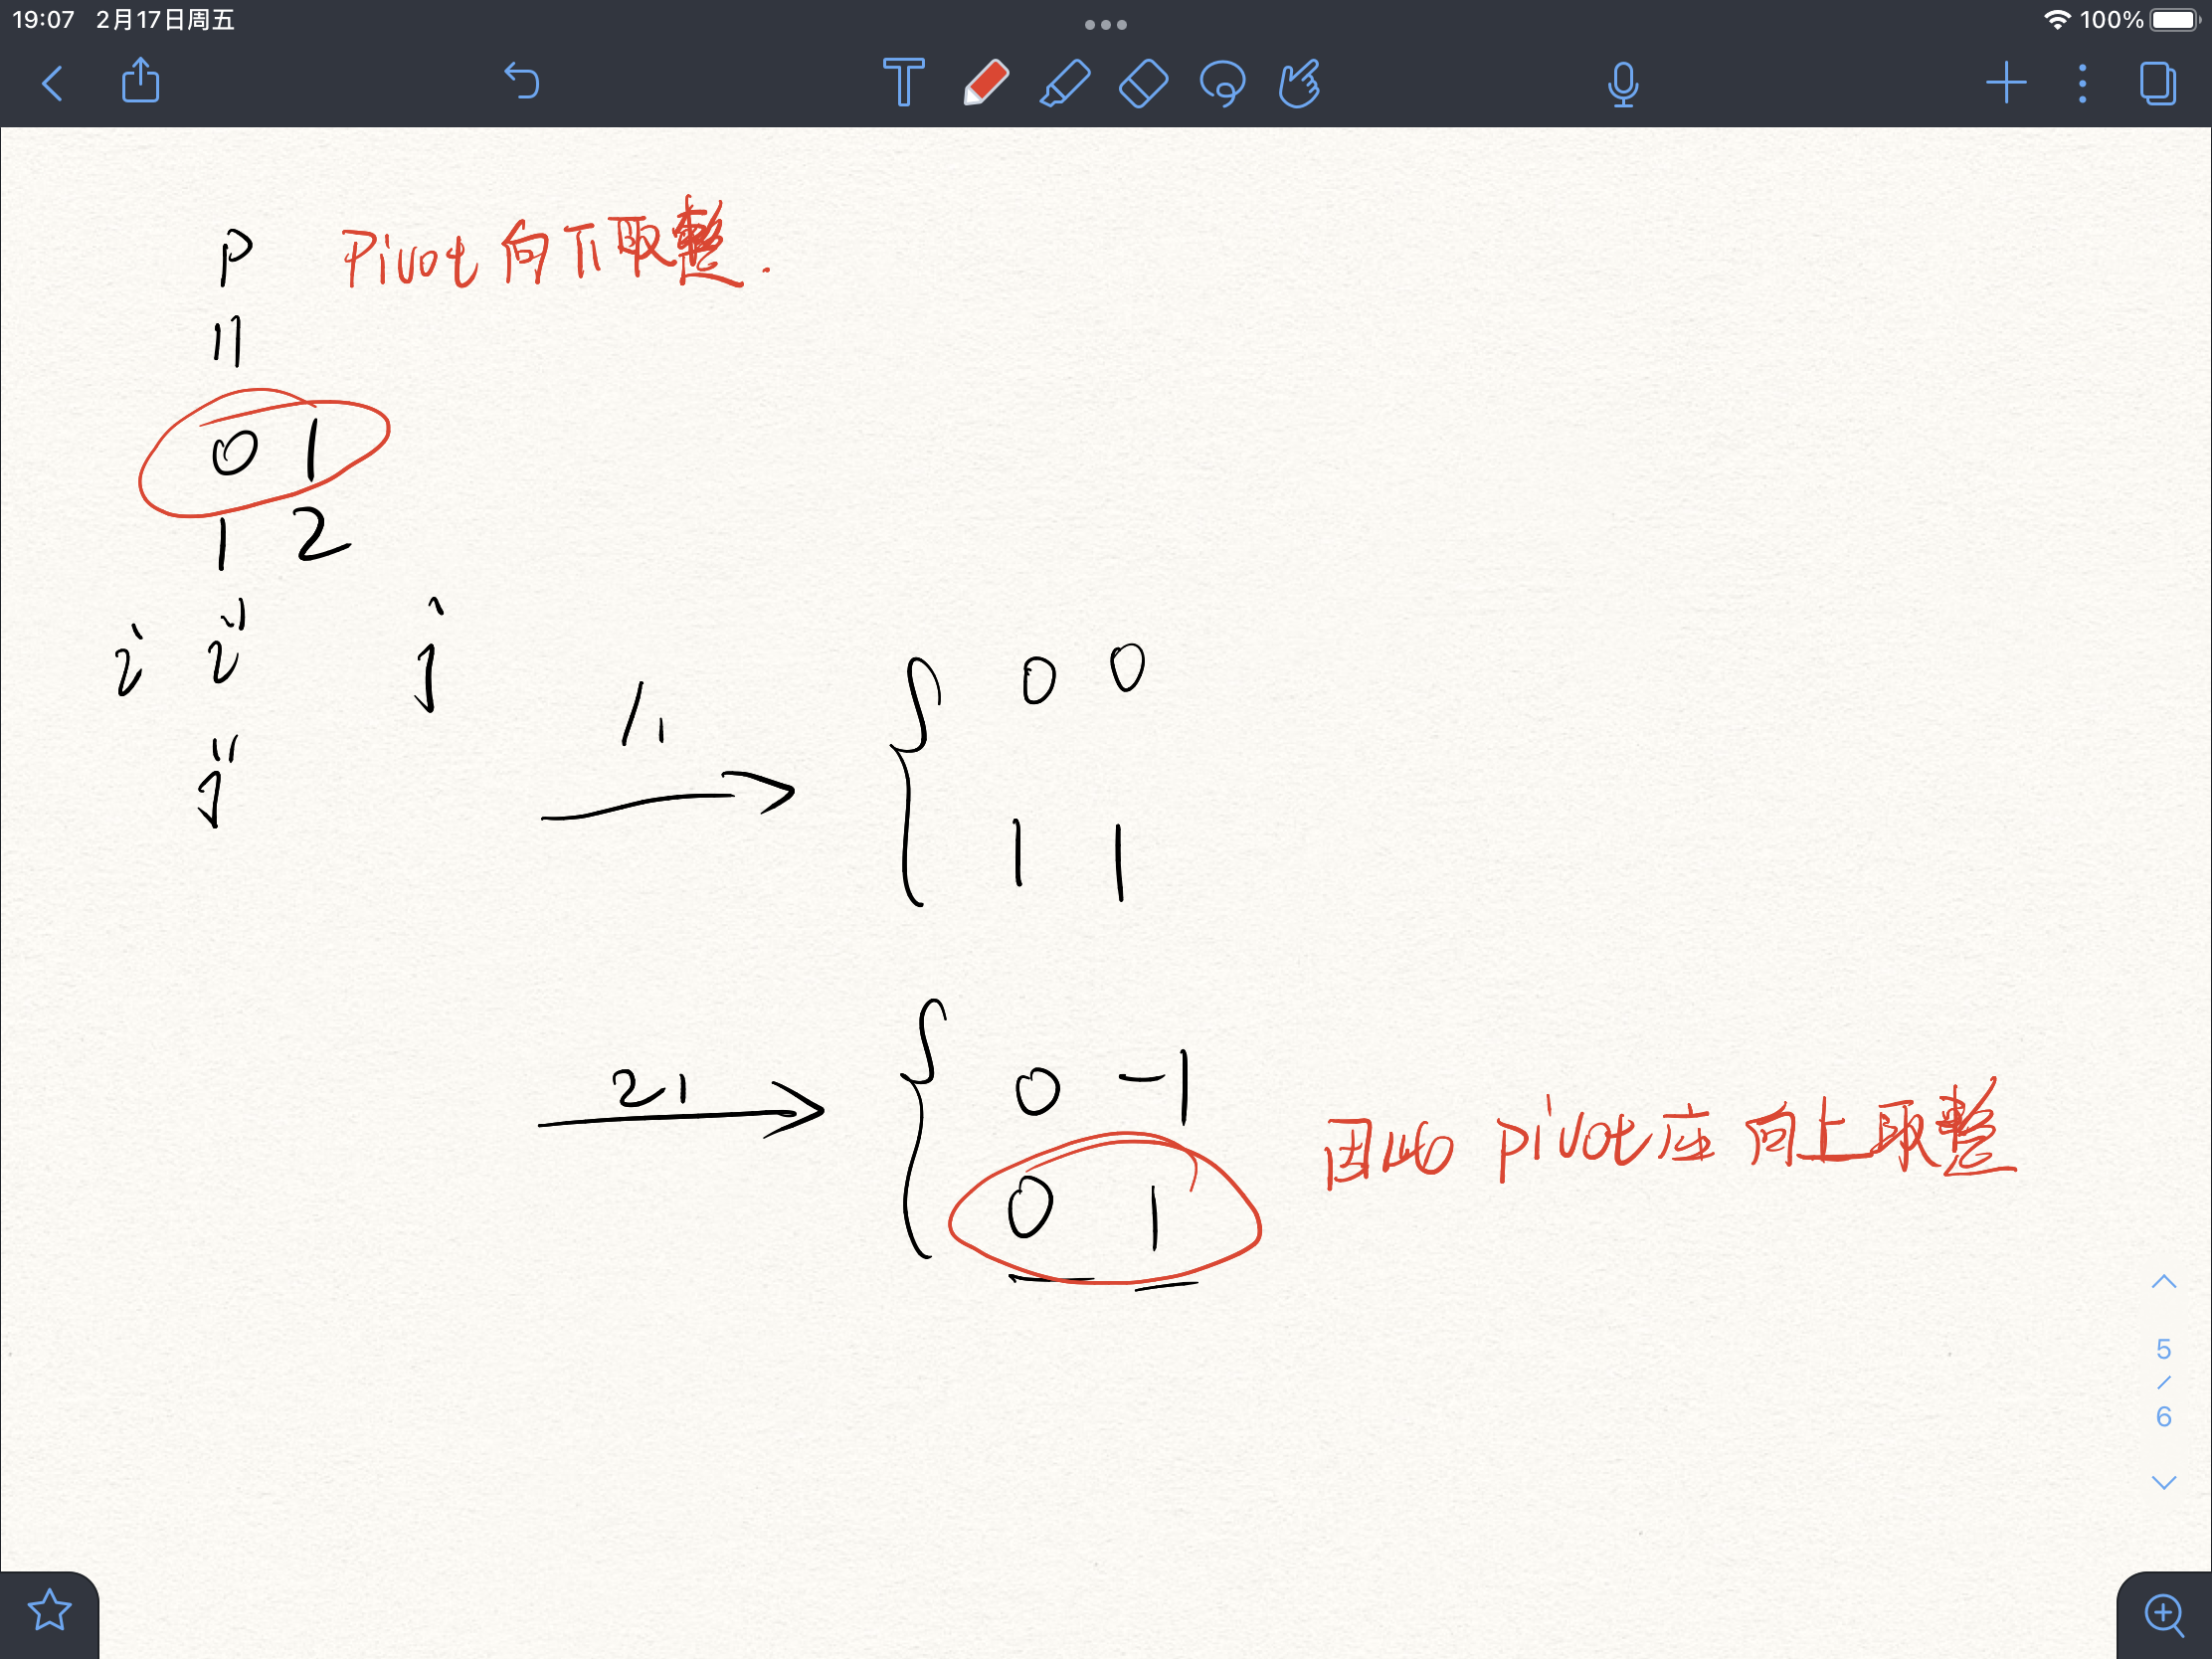 19:07 2月17日周五
100%
P Pivot 向下取整.
0 1
1 2
i i j
j
0 0
1 1
21
0 -1
0 1
因此 pivot 应 向上取整
5
/
6